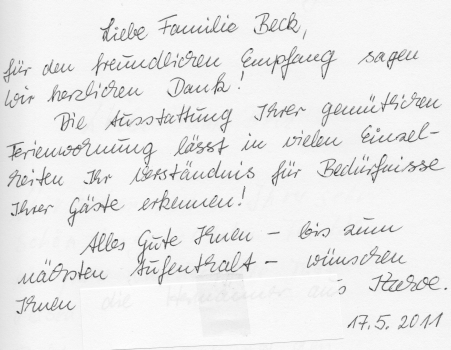 Liebe Familie Beck,
für den freundlichen Empfang sagen
wir herzlichen Dank!
Die Ausstattung Ihrer gemütlichen
Ferienwohnung lässt in vielen Einzel-
heiten Ihr Verständnis für Bedürfnisse
Ihrer Gäste erkennen!
Alles Gute Ihnen – bis zum
nächsten Aufenthalt – wünschen
Ihnen die aus
17.5.2011